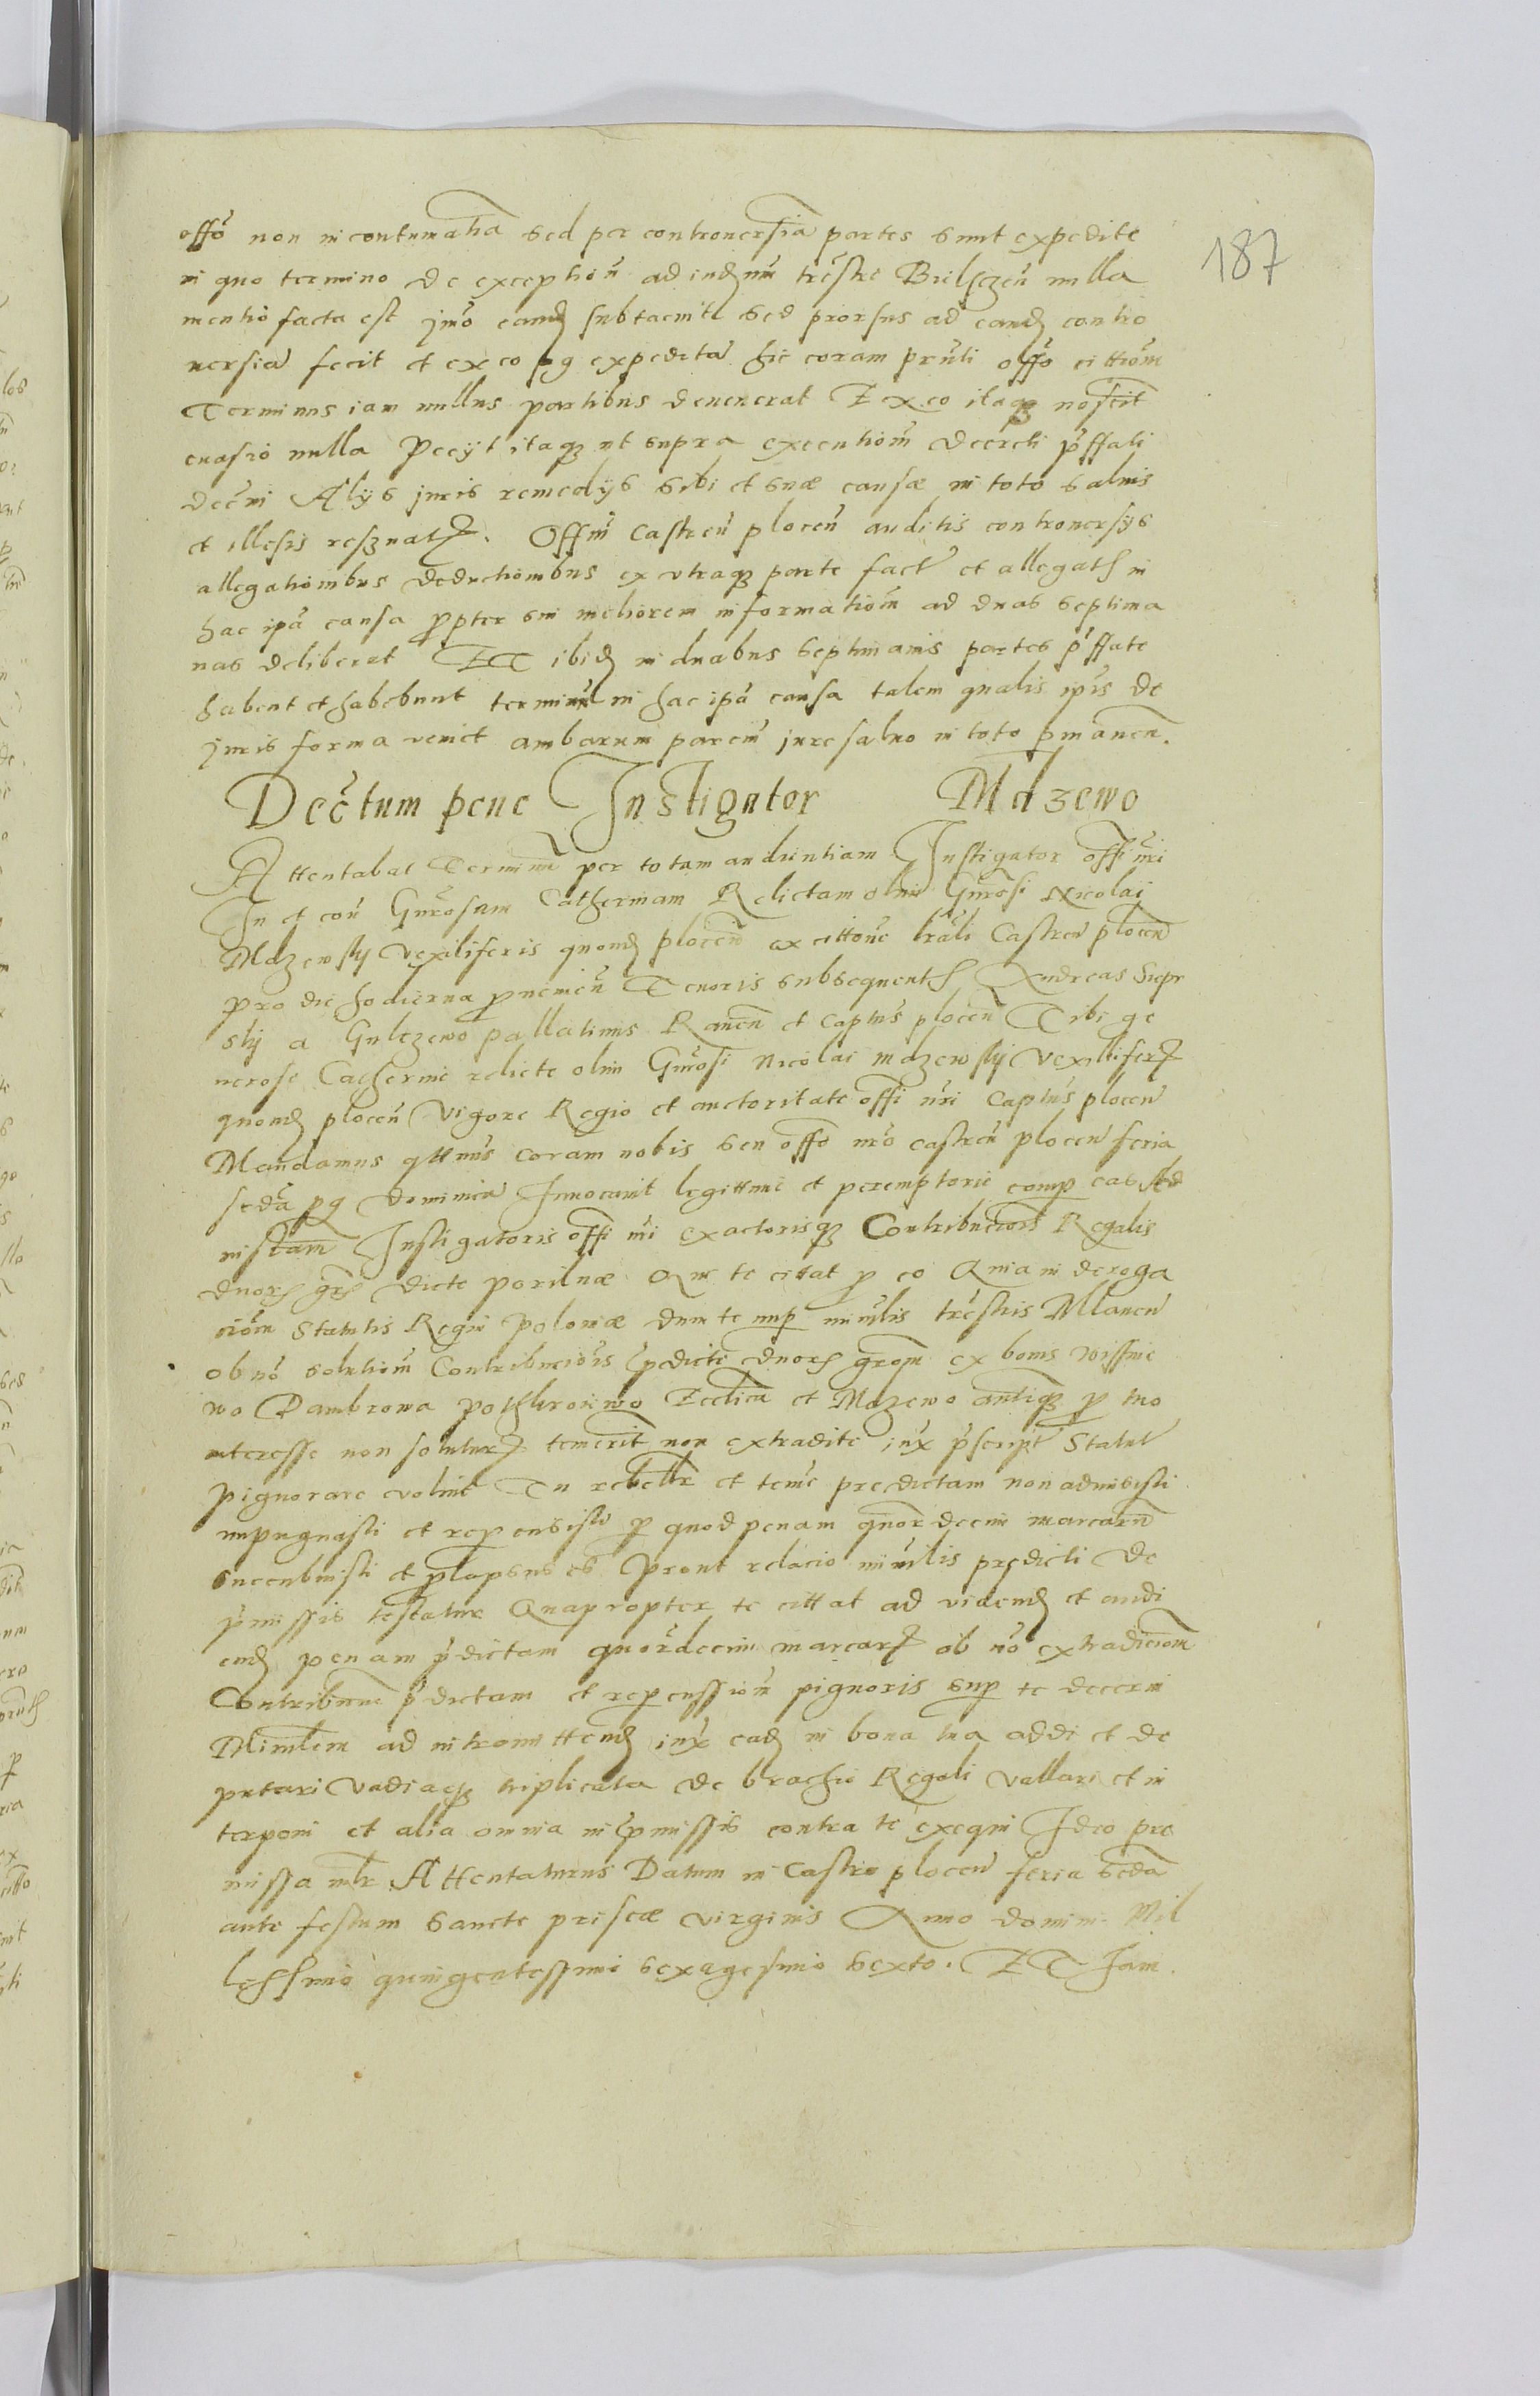 187
offo non in contumatia sed per controuersia partes sunt expedite
in quo termino de exception ad iudnm trestre Bielsczen nulla
mentio facta est jmo eand subtacuit sed prorsus ad eand contro
uersia fecit et ex eo pg expedita hic coram pruti offo cittiom
Terminus iam nullus partibus deuenerat Et ex eo itaq noscit
euasio nulla Pecyt itaq ut supra executiom decreti pffati
decni Alys juris remedys sibi et suæ causæ in toto saluis
et illesis reseruat. Offm Castren plocen auditis controuersys
allegationibus deductionibus ex vtraq parte fact et allegat in
hac ipa causa ppter sui meliorem informatiom ad duas septima
nas deliberat ET ibid in duabus septimanis partes pffate
habent et habebunt terminu in hac ipa causa talem qualis ipis de
juris forma veniet ambarum parcm jure saluo in toto pmanen.
Dectum pene Instigator Mdzewo
Attentabat Terminu per totam audientiam Instigator offi nri
In et con Gnrosam Catherinam Relictam olim Gnrosi Nicolai
Mdzewsky Vexiliferis quond plocen ex cittone lrali Castren plocen
pro die hodierna pueniem Tenoris subsequent Andreas Siepr
sky a Gulczewo pallatinus Rauen et Captus plocen Tibi ge
nerose Catherine relicte olim Gnrosi Nicolai mdzewsky Vexillifer
quond plocen Vigore Regio et auctoritate offi nri Captus plocen
Mandamus qttnus coram nobis seu offo nro castren plocen feria
scda pg dominica Inuocauit legittime et peremptorie comp eas ad
instam Instigatoris offi nri exactorisq Contribucions Regalis
duor gr dicte poriluæ Qui te citat p eo Quia in deroga
ciom Statutis Regni Poloniæ dum te nup minilis trestris Mlauen
ob no solutiom Contribucionis pdicte duor grom ex bonis wissnie
wo Dambrowa Ecclica et Mdzewo antiq p tuo
interesse non solutur temerit non extradite iux pscript Statut
pignorare voluit Tu rebellr et teme predictam non admisisti
impugnasti et repensisti p quod penam quordecim marcaru
succubuisti et plapsus es Prout relacio minilis predicti de
pmissis testatur Quapropter te cittat ad vidend et audi
end penam pdictam quordecim marcar ob no extradiciom
Contribnme pdictam et repenssiom pignoris sup te decerni
Minilem ad intromittend iux ead in bona tua addi et de
putari Vadiaq triplicata de brachio Regali vallari et in
terponi et alia omnia in pmissis contra te exequi Ideo pre
missa mlr Attentaturus Datum in Castro plocen feria scda
ante festum Sancte priscæ virginis Anno domini Mil
lessimo quingentessimo sexagesimo sexto. ET Iam.